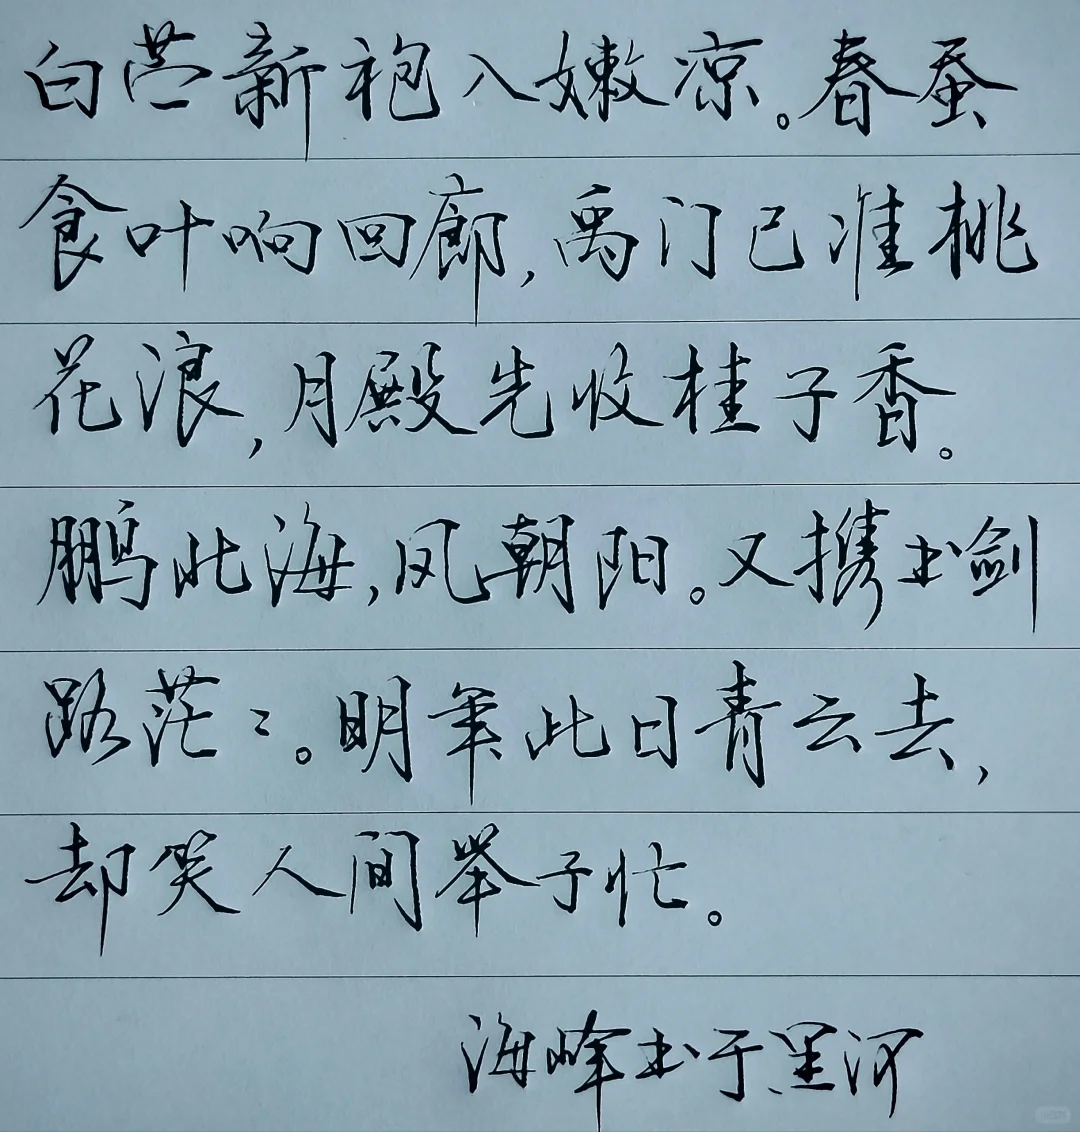 白苎新袍入嫩凉。春蚕
食叶响回廊,禹门已准桃
花浪,月殿先收桂子香。
鹏北海,凤朝阳。又携书剑
路茫〻。明年此日青云去,
却笑人间举子忙。
海峰书于黑河